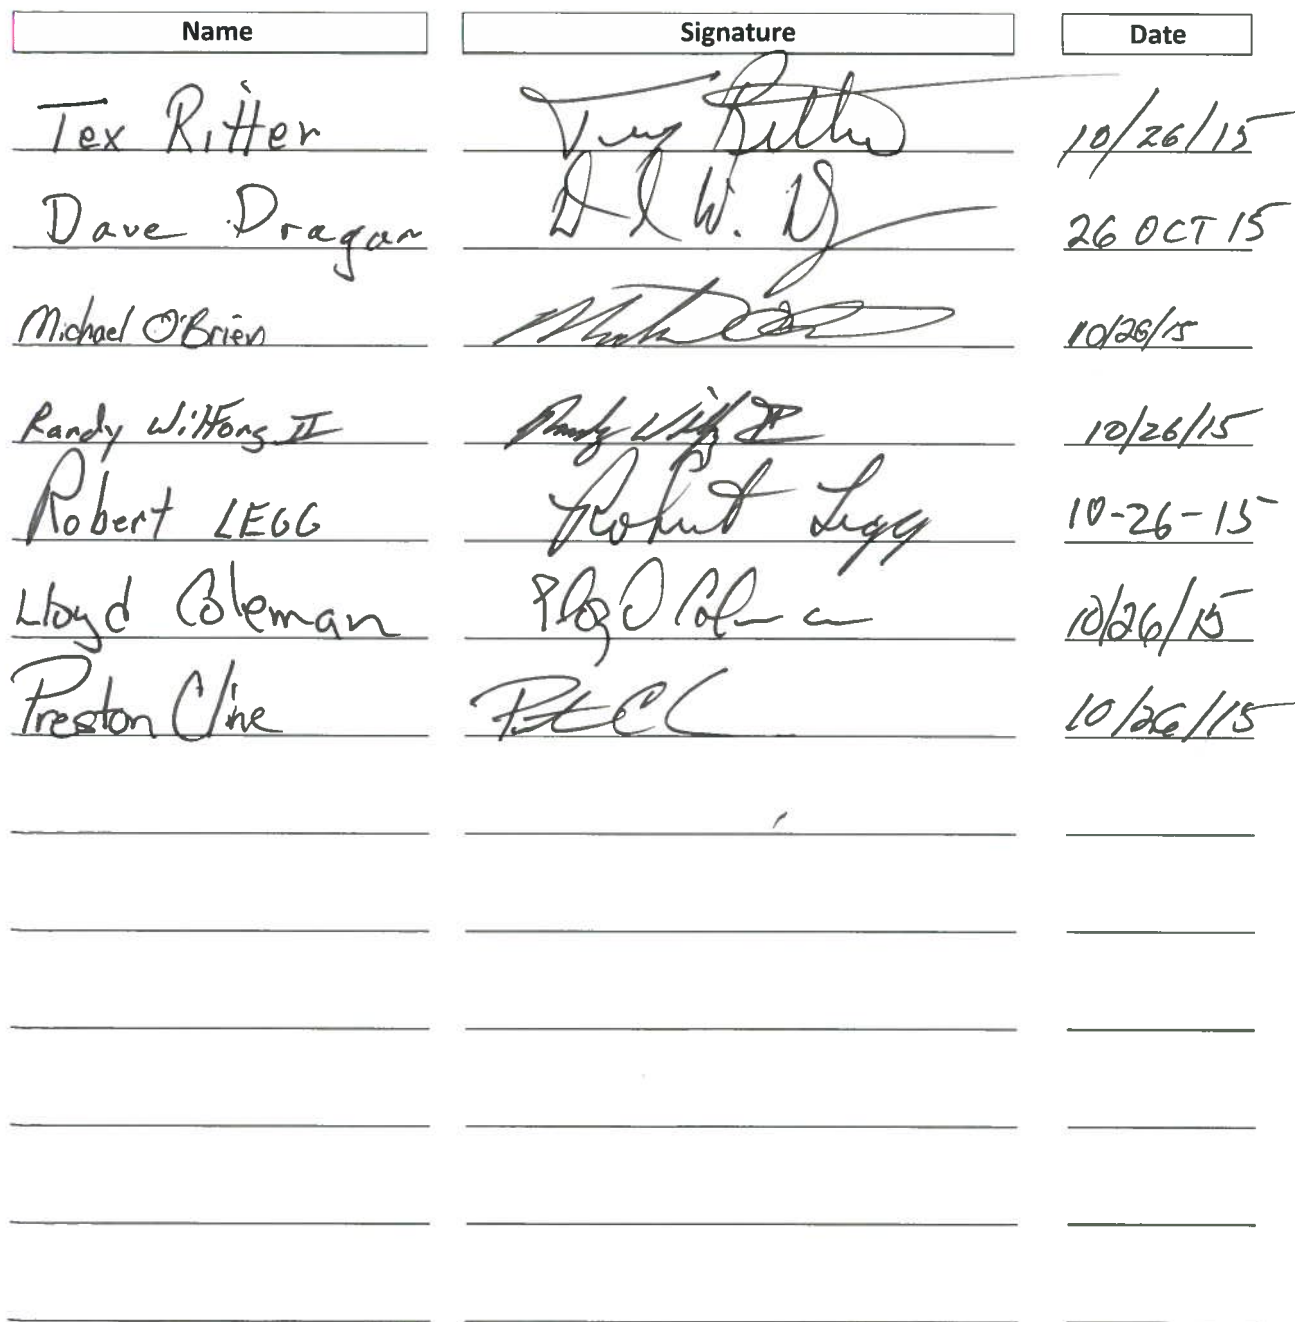 Name Signature Date
Tex Ritter Tex Ritter 10/26/15
Dave Dragan 26 OCT 15
Michael O'Brien 10/26/15
Randy Wilfong II Randy Wilfg II 10/26/15
Robert LEGG Robert Legg 10-26-15
Lloyd Coleman 10/26/15
Preston Cline 10/26/15